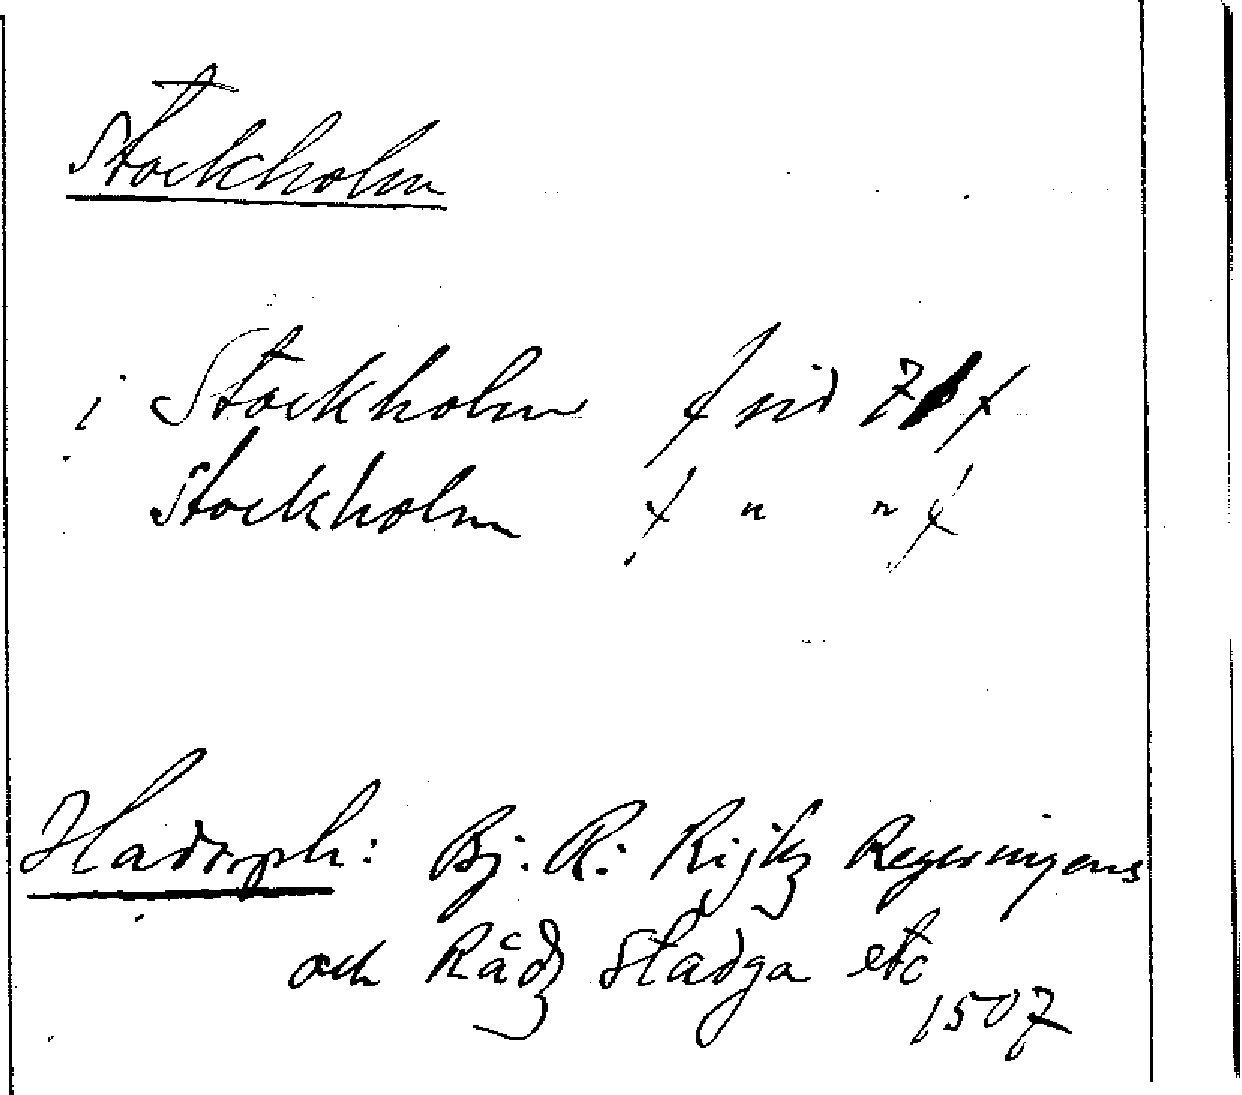 Stockholm
i Stockholm f sid 71 f
Stockholm f " " f
Hadorph: Bj. R: Rijkz Regeringens
och Rådz Stadga etc
1507